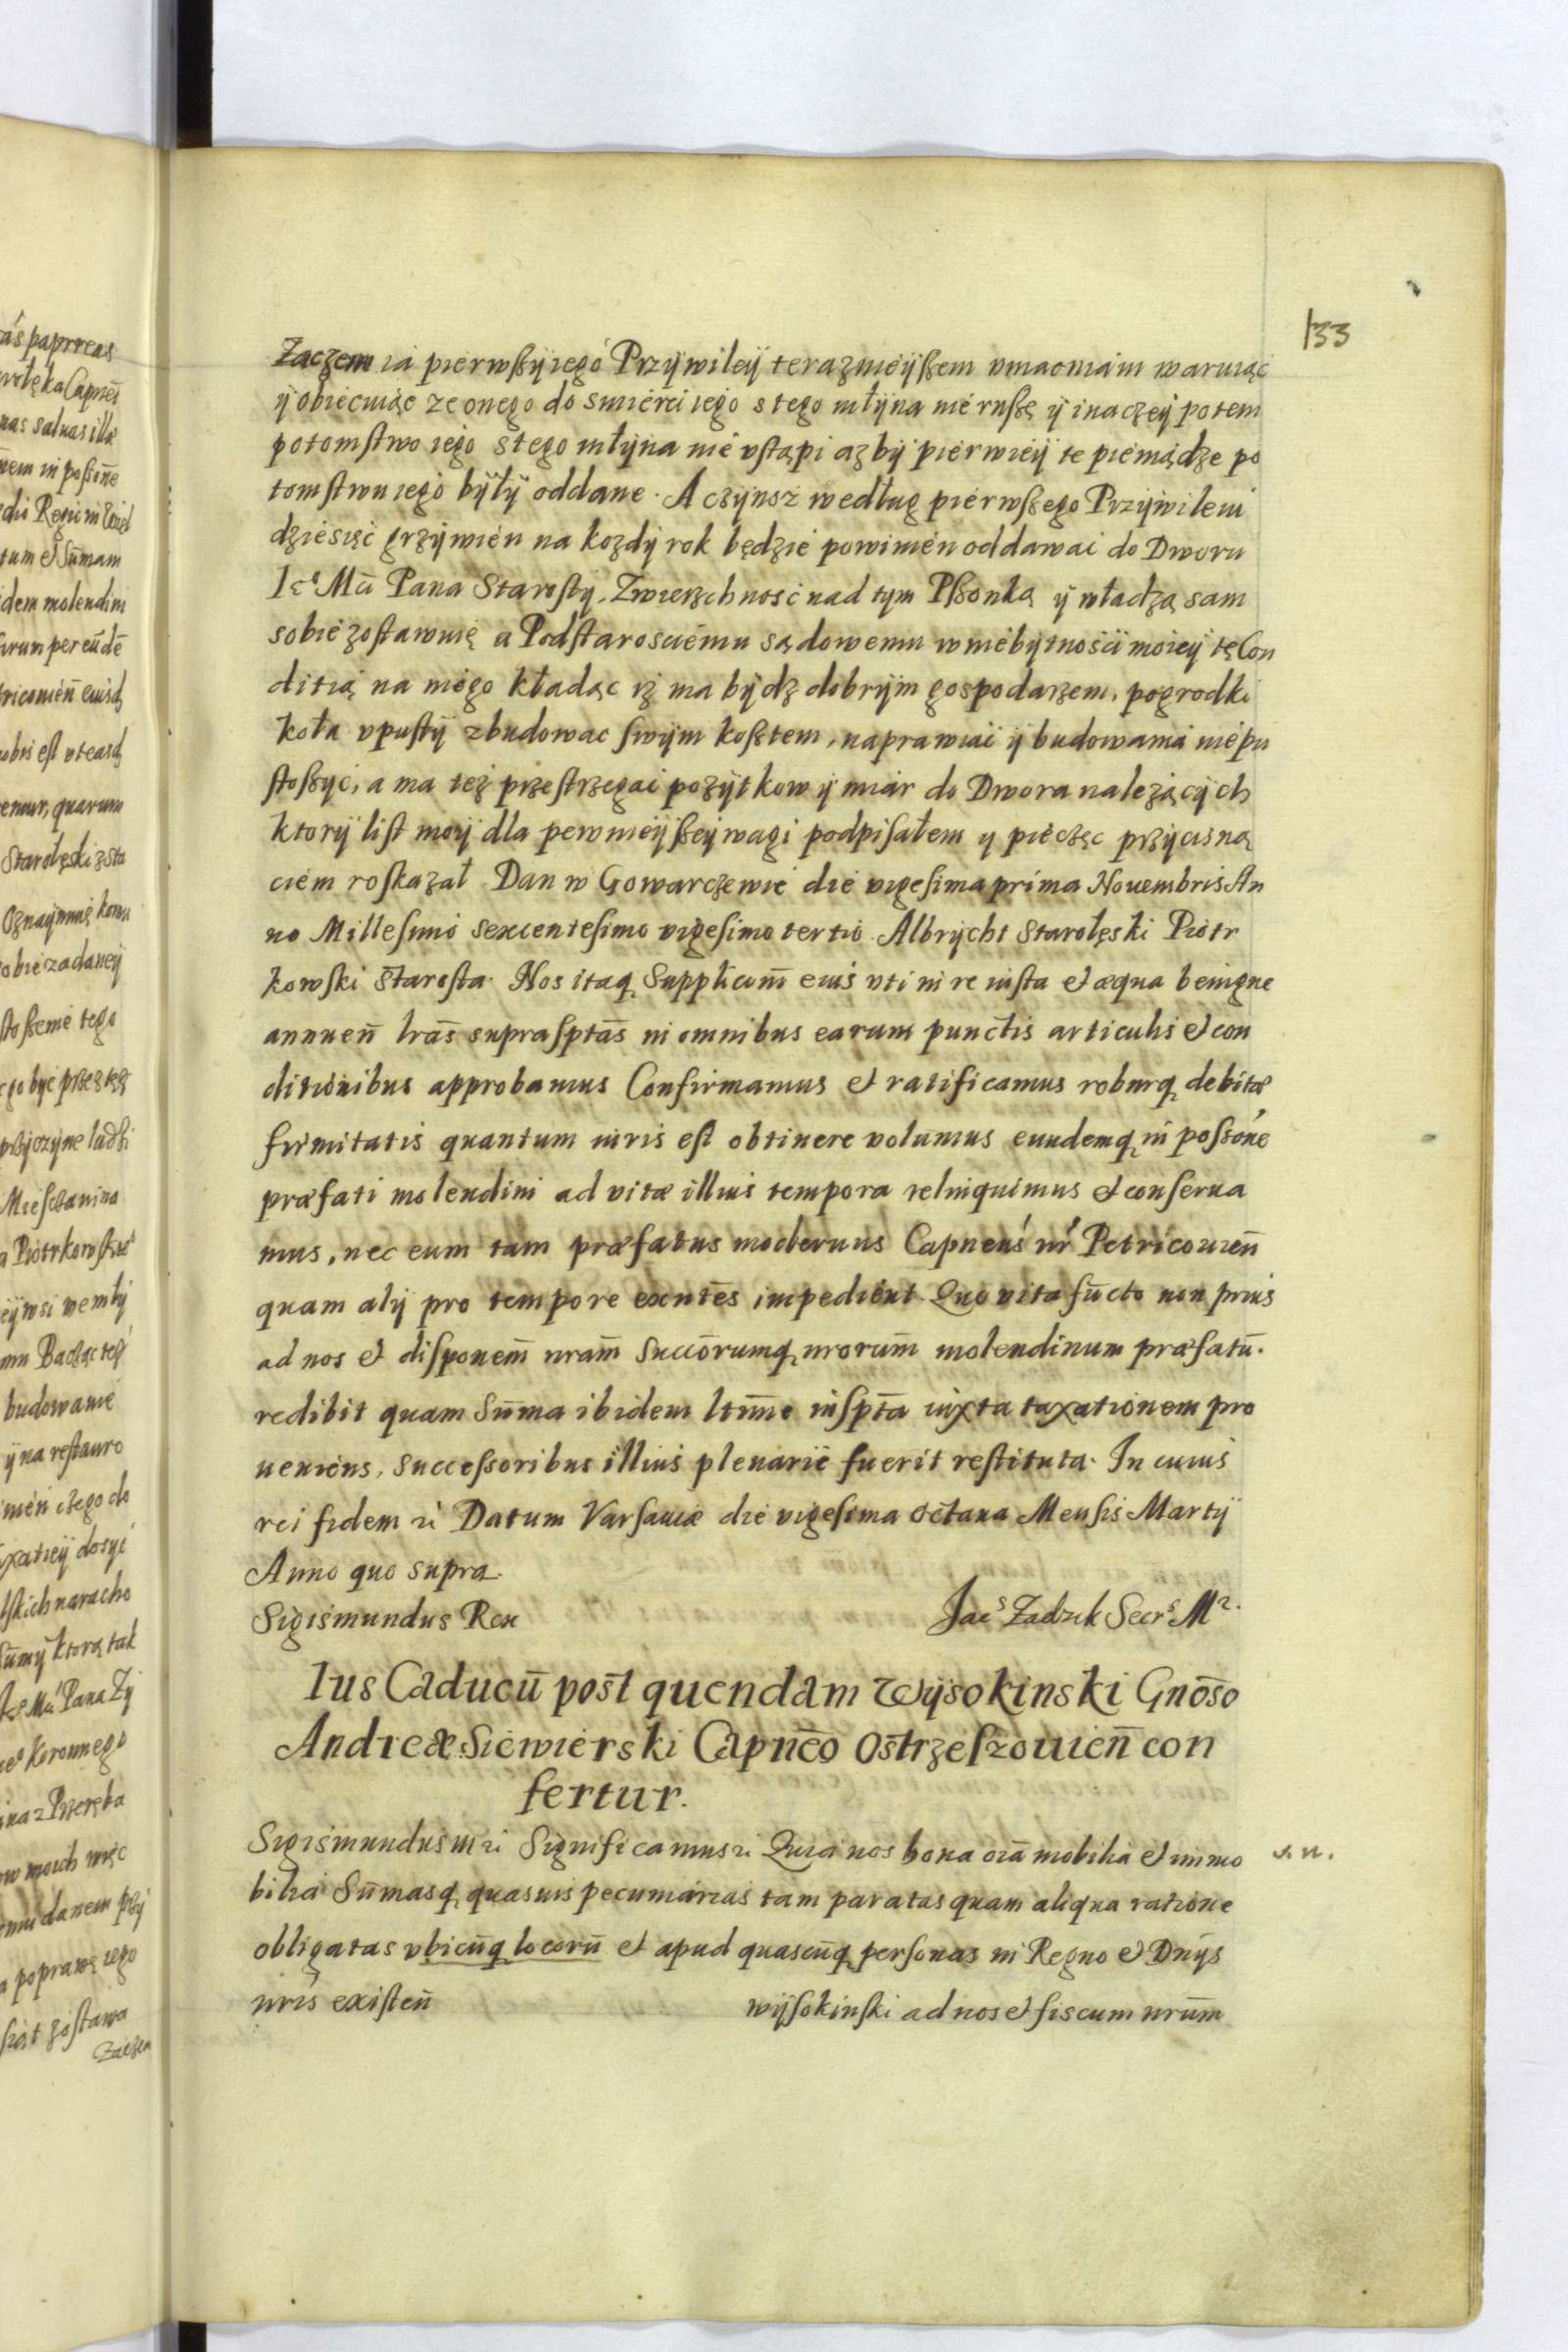 133
Zaczem ia pierwßÿ iego Przÿwileÿ teraznieÿßem vmacniam waruiąc
ÿ obiecuiąc ze onego do smierci iego s tego młÿna nie rußę ÿ inaczeÿ potem
potomſtwo iego s tego młÿna nie vſtąpi azbÿ pierwieÿ te pieniądze po
tomſtwu iego bÿłÿ oddane. A czÿnsz według pierwßego Przÿwileiu
dziesięć grzÿwien na kozdÿ rok będzie powinien oddawać do Dworu
Ię° Mci Pana Staroſtÿ. Zwierzchność nad tym Pßonką ÿ władzą sam
sobie zoſtawuię a Podſtarosciemu sądowemu w niebÿtnościi moieÿ tę Con
ditią na niego kładąc iz ma bÿdz dobrÿm gospodarzem, pogrodki
koła vpuſtÿ zbudowac ſwÿm koſztem, naprawiać ÿ budowania niepu
ſtoßÿć, a ma też przeſtrzegać pozÿtkow ÿ miar do Dwora nalezącÿch
ktorÿ liſt moÿ dla pewnieÿßeÿ wagi podpiſałem y pieczęc przÿcisną
ciem roſkazał Dan w Gowarczewie die vigeſima prima Nouembris An
no Milleſimo sexcenteſimo vigeſimo tertio Albrÿcht Starołęski Piotr
kowſki Staroſta. Nos itaq̨ Supplicūm eius vti in re iuſta et æqua benigne
annueñ lrās supraſptās in omnibus earum punctis articulis et con
ditionibus approbamus Confirmamus et ratificamus roburq̨ debitæ
firmitatis quantum iuris eſt obtinere volumus eundemq̨ in poßōne
præfati molendini ad vitæ illius tempora relinquimus et conſerua
mus, nec eum tam præfatus modernus Capneus nr̄ Petricouieñ
quam alÿ pro tempore exñtes impedient. Quo vita fūcto non prius
ad nos et diſponem̄ nram̄ Succōrumq̨ nrorum̄ molendinum præfatū.
redibit quam Sūma ibidem ltīme inſptā iuxta taxationem pro
ueniens, Succeſſoribus illius plenarie fuerit reſtituta. In cuius
rei fidem &c Datum Varſauiæ die vigeſima octaua Menſis Martÿ
Anno quo supra.
Sigismundus Rex
Jac⁹ Zadzik Secr⁹ Mr.
Ius Caducū poſt quendam Wÿsokinski Gnōso
Andreæ Siewierski Capnēo Oſtrzeſzouieñ con
fertur.
Sigismundus III &c Significamus &c Quia nos bona oīa mobilia et immo
v. n.
bilia Sūmasq̨ quasuis pecuniarias tam paratas quam aliqua ratione
obligatas vbicūq̨ locorū et apud quascūq̨ perſonas in Regno et Dnÿs
nris exiſteñ wÿſokinſki ad nos et fiscum nrum̄